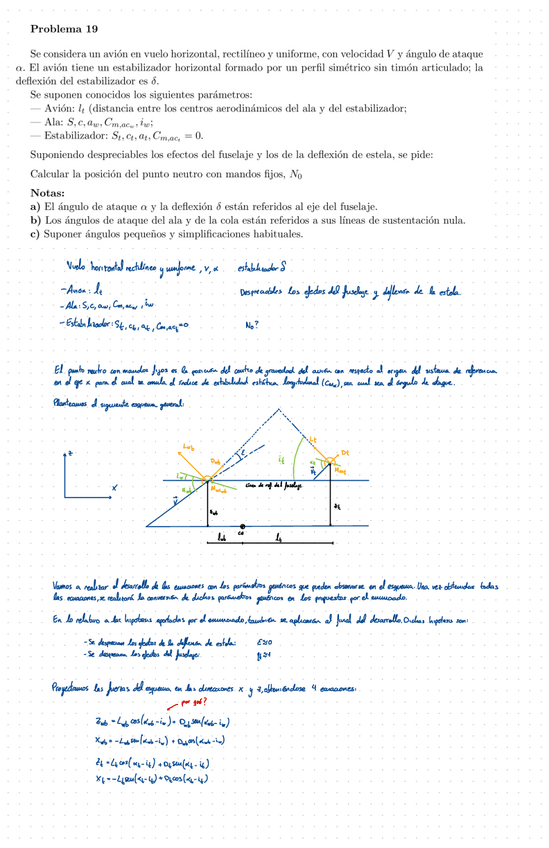 Problema 19
Se considera un avión en vuelo horizontal, rectilíneo y uniforme, con velocidad V y ángulo de ataque
α. El avión tiene un estabilizador horizontal formado por un perfil simétrico sin timón articulado; la
deflexión del estabilizador es δ.
Se suponen conocidos los siguientes parámetros:
— Avión: l_t (distancia entre los centros aerodinámicos del ala y del estabilizador;
— Ala: S, c, a_w, C_{m,ac_w}, i_w;
— Estabilizador: S_t, c_t, a_t, C_{m,ac_t} = 0.
Suponiendo despreciables los efectos del fuselaje y los de la deflexión de estela, se pide:
Calcular la posición del punto neutro con mandos fijos, N_0
Notas:
a) El ángulo de ataque α y la deflexión δ están referidos al eje del fuselaje.
b) Los ángulos de ataque del ala y de la cola están referidos a sus líneas de sustentación nula.
c) Suponer ángulos pequeños y simplificaciones habituales.
Vuelo horizontal rectilíneo y uniforme, V, α estabilizador δ
- Avión: l_t Despreciables los efectos del fuselaje y deflexión de la estela
- Ala: S, c, a_w, C_{m,ac_w}, i_w
- Estabilizador: S_t, c_t, a_t, C_{m,ac_t}=0 N_0?
El punto neutro con mandos fijos es la posición del centro de gravedad del avión con respecto al origen del sistema de referencia
en el eje x para el cual se anula el índice de estabilidad estática longitudinal (C_{mα}), sea cual sea el ángulo de ataque.
Planteamos el siguiente esquema general:
z
x
L_wb
D_wb
ε
i_t
L_t
D_t
línea de ref. del fuselaje
V
z_wb
z_t
CG
l_wb
l_t
Vamos a realizar el desarrollo de las ecuaciones con los parámetros genéricos que pueden observarse en el esquema. Una vez obtenidas todas
las ecuaciones, se realizará la conversión de dichos parámetros genéricos en los propuestos por el enunciado.
En lo relativo a las hipótesis aportadas por el enunciado, también se aplicarán al final del desarrollo. Dichas hipótesis son:
- Se desprecian los efectos de la deflexión de estela: ε≃0
- Se desprecian los efectos del fuselaje:
Proyectamos las fuerzas del esquema en las direcciones x y z, obteniéndose 4 ecuaciones:
por qué?
Z_wb = L_wb cos(α_wb - i_w) + D_wb sen(α_wb - i_w)
X_wb = -L_wb sen(α_wb - i_w) + D_wb cos(α_wb - i_w)
Z_t = L_t cos(α_t - i_t) + D_t sen(α_t - i_t)
X_t = -L_t sen(α_t - i_t) + D_t cos(α_t - i_t)